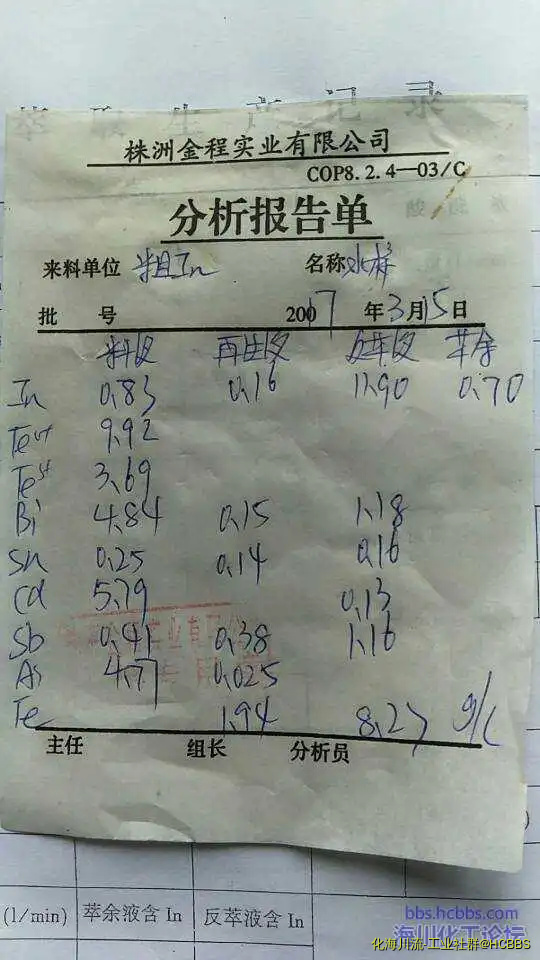 萃取生产记录
株洲金程实业有限公司
COP8.2.4—03/C
分析报告单
来料单位 粗In 名称 水样
批 号 2017 年 3 月 15 日
料液 再生液 反萃液 萃余
In 0.83 0.16 11.90 0.70
9.92
3.69
Bi 4.84 0.15 1.18
Sn 0.25 0.14 0.16
Cd 5.79 0.13
Sb 0.41 0.38 1.16
As 4.77 0.025
Fe 1.94 8.27 g/L
主任 组长 分析员
(l/min) 萃余液含 In 反萃液含 In
bbs.hcbbs.com
海川化工论坛
化海川流-工业社群@HCBBS